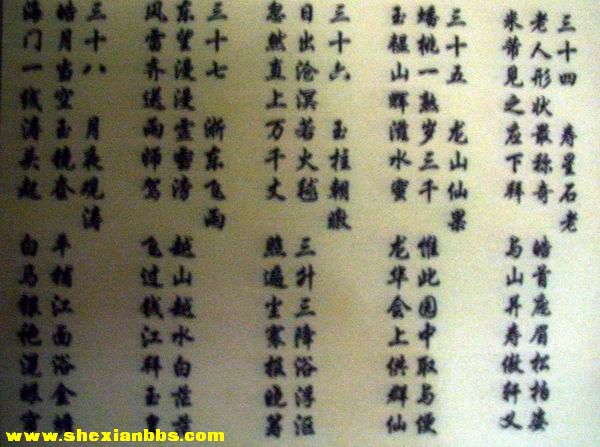 三十四 寿星石老
老人形状最称奇 皓首庞眉松柏姿
米芾見之应下拜 与山并寿傲轩
三十五 龙山仙果
蟠桃一熟岁三千 惟此园中取与便
玉韫山辉滋水蜜 龙华会上供群仙
三十六 玉柱朝暾
日出沧溟若火毬 三升三降浴浮沤
忽然直上万千丈 照遍尘寰报晓筹
三十七 浙东飞雨
东望漫漫雲雷滂 越山越水白茫茫
风雷齐送雨师驾 飞过钱江拜玉
三十八 月夜观涛
皓月当空玉镜奁 平铺江面浴金
海门一线涛头起 白马银袍滚眼
www.shexianbbs.com